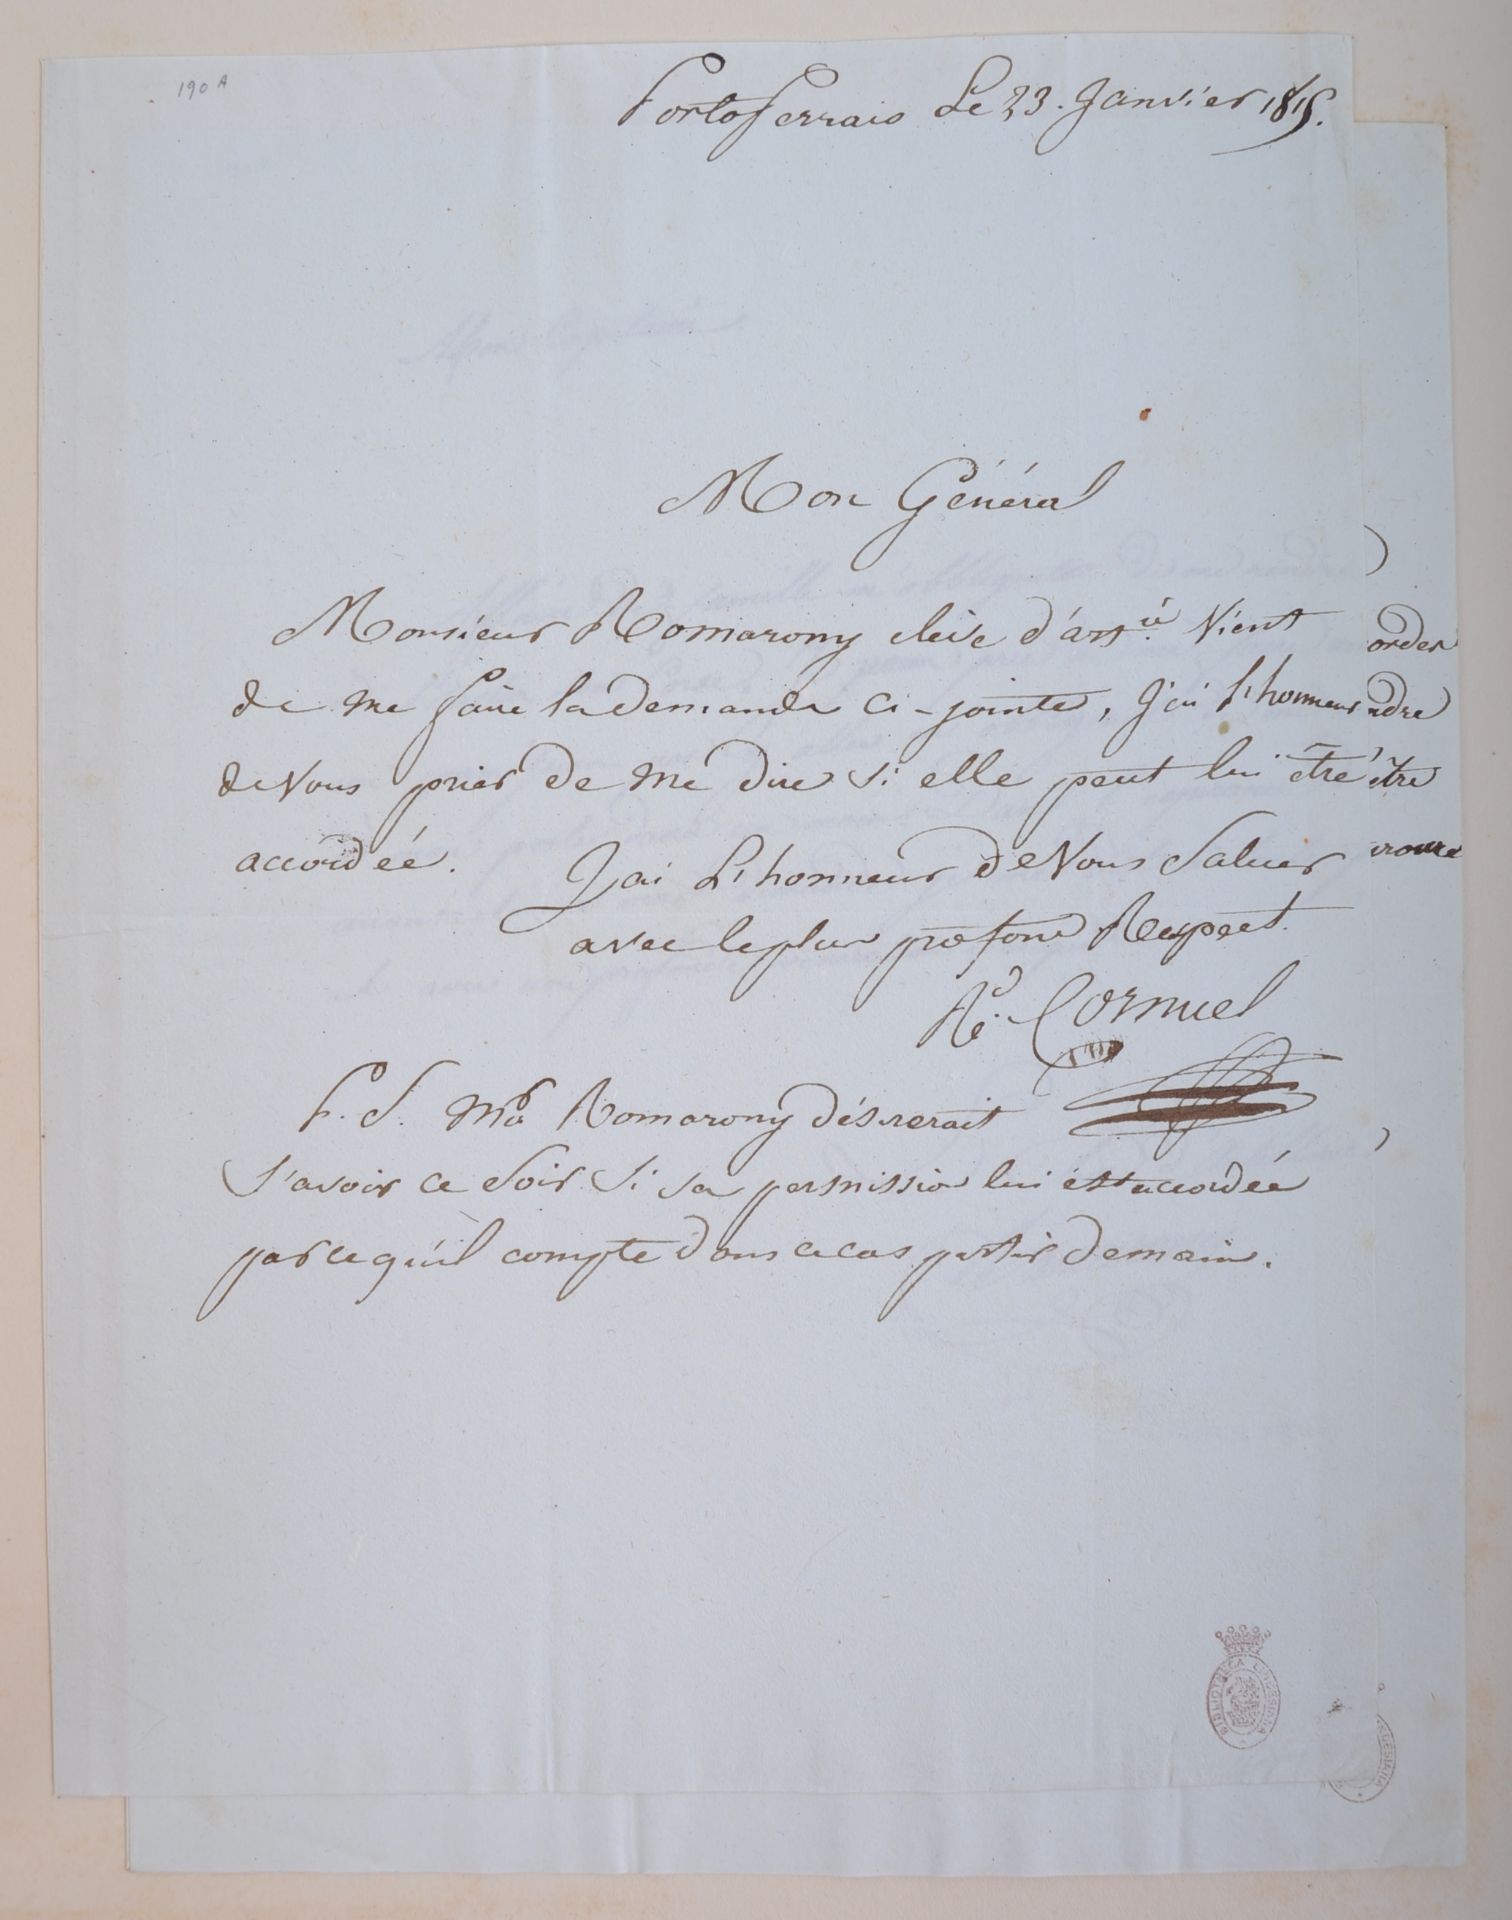 190 A
Portoferraio Le 23. Janvier 1815.
Mon Général
Monsieur Romarony éleve d'artie. Vient
de me faire la demande ci-jointe, J'ai l'honneur
de Vous prier de me dire si elle peut lui être
accordée.
J'ai L'honneur de Vous Saluer
avec le plus profond Respect.
Cornuel
P. S. Mr Romarony désirerait
s'avoir ce Soir Si sa permission lui est accordée
parce qu'il compte dans ce cas partir demain.
order
ndre
être
BIBLIOTHECA LINDESIANA
DESIANA